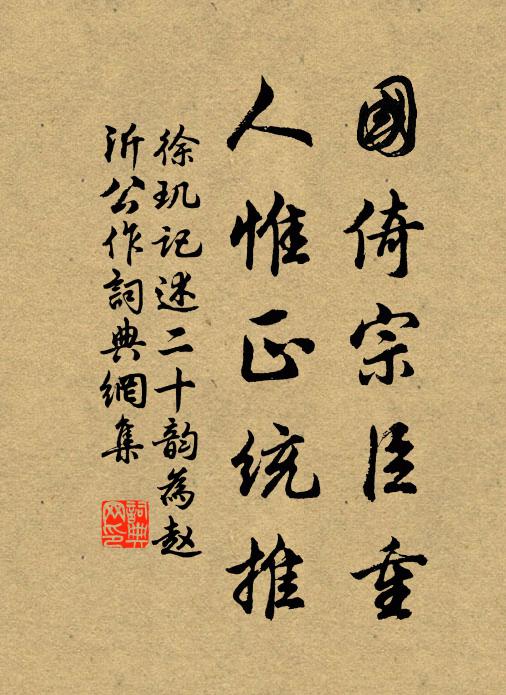 國倚宗臣重
人惟正統推
徐玑記述二十韵為赵
沂公作詞典網集
詞典
网印